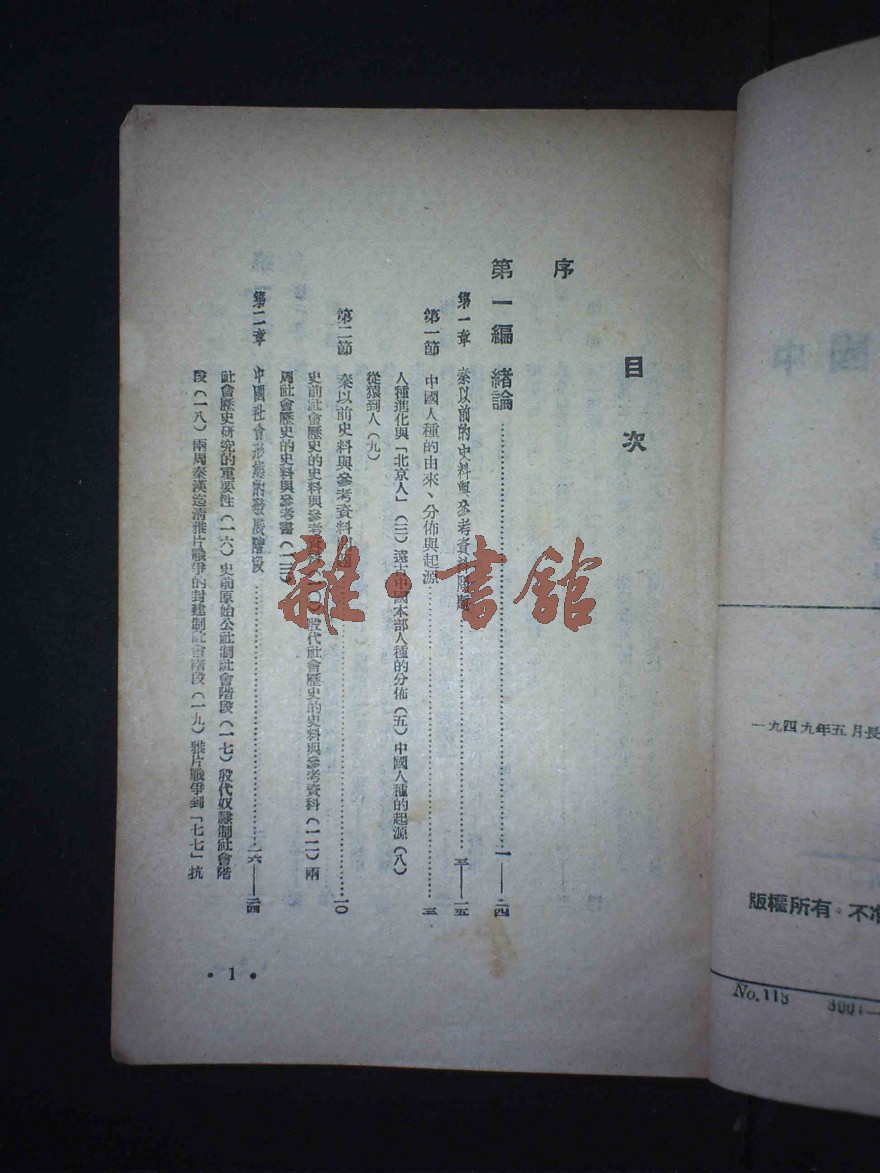 目次
序
第一編 緒論……一——二四
第一章 秦以前的史料與參考資料問題……三——一五
第一節 中國人種的由來、分佈與起源……三
人種進化與「北京人」(三)遠古中國本部人種的分佈(五)中國人種的起源(八)
從猿到人(九)
第二節 秦以前史料與參考資料問題……一〇
史前社會歷史的史料與參考資料(一〇)殷代社會歷史的史料與參考資料(一二)兩
周社會歷史的史料與參考書(一三)
第二章 中國社會形態的發展階段……一六——二四
社會歷史研究的重要性(一六)史前原始公社制社會階段(一七)殷代奴隸制社會階
段(一八)兩周秦漢迄清雅片戰爭的封建制社會階段(一九)雅片戰爭到「七七」抗
• 1 •
雜·書館
國中
一九四九年五月長
版權所有·不准
No.118